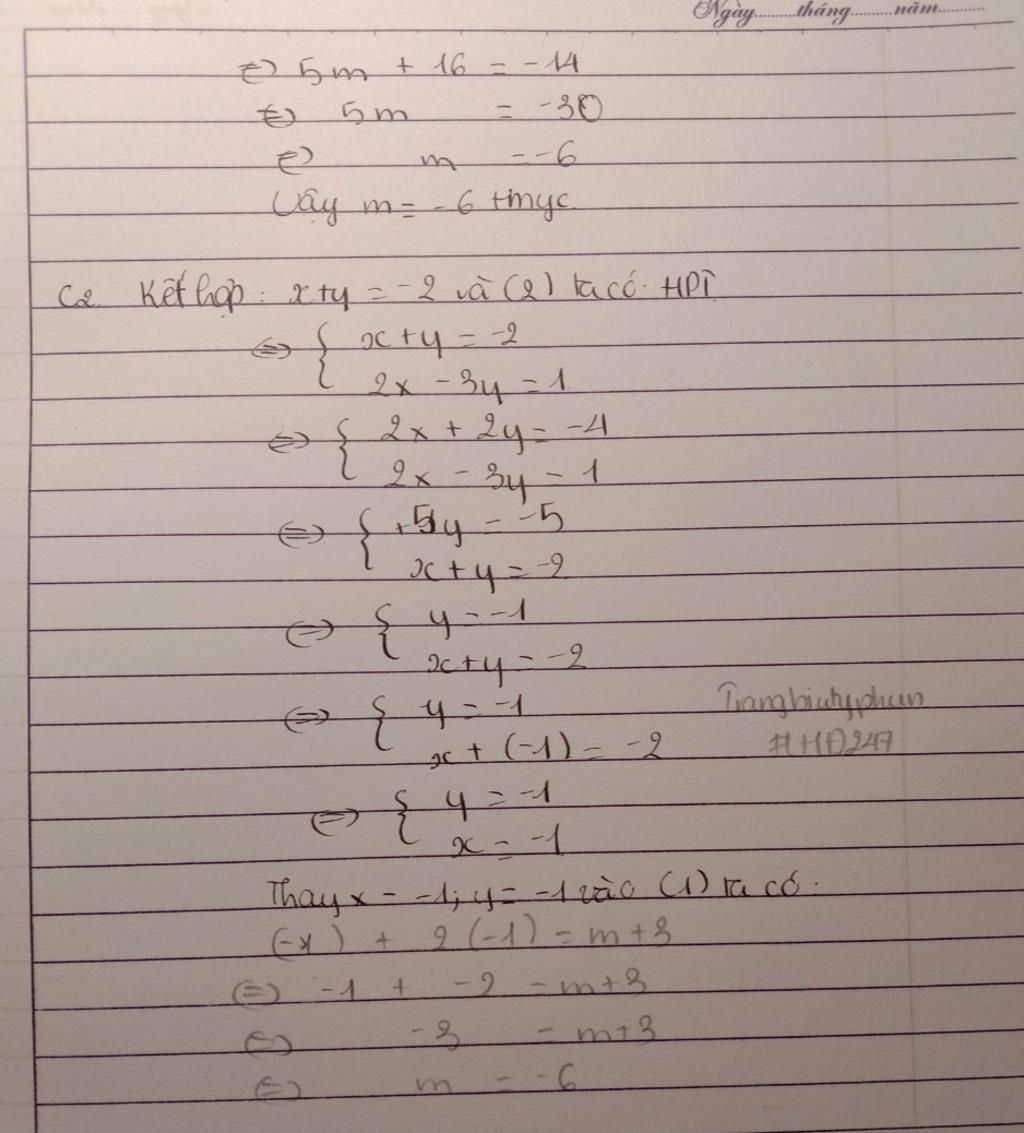 Ngày.........tháng.........năm..........
⇔ 5m + 16 = -14
⇔ 5m = -30
⇔ m = -6
Vậy m = -6 tmyc.
C2 Kết hợp: x+y = -2 và (2) ta có: HPT
⇔ { x+y = -2
2x - 3y = 1
⇔ { 2x + 2y = -4
2x - 3y = 1
⇔ { +5y = -5
x+y = -2
⇔ { y = -1
x+y = -2
⇔ { y = -1
x + (-1) = -2
⇔ { y = -1
x = -1
Thay x = -1; y = -1 vào (1) ta có:
(-1) + 2(-1) = m+3
⇔ -1 + -2 = m+3
⇔ -3 = m+3
⇔ m = -6
#HĐ247